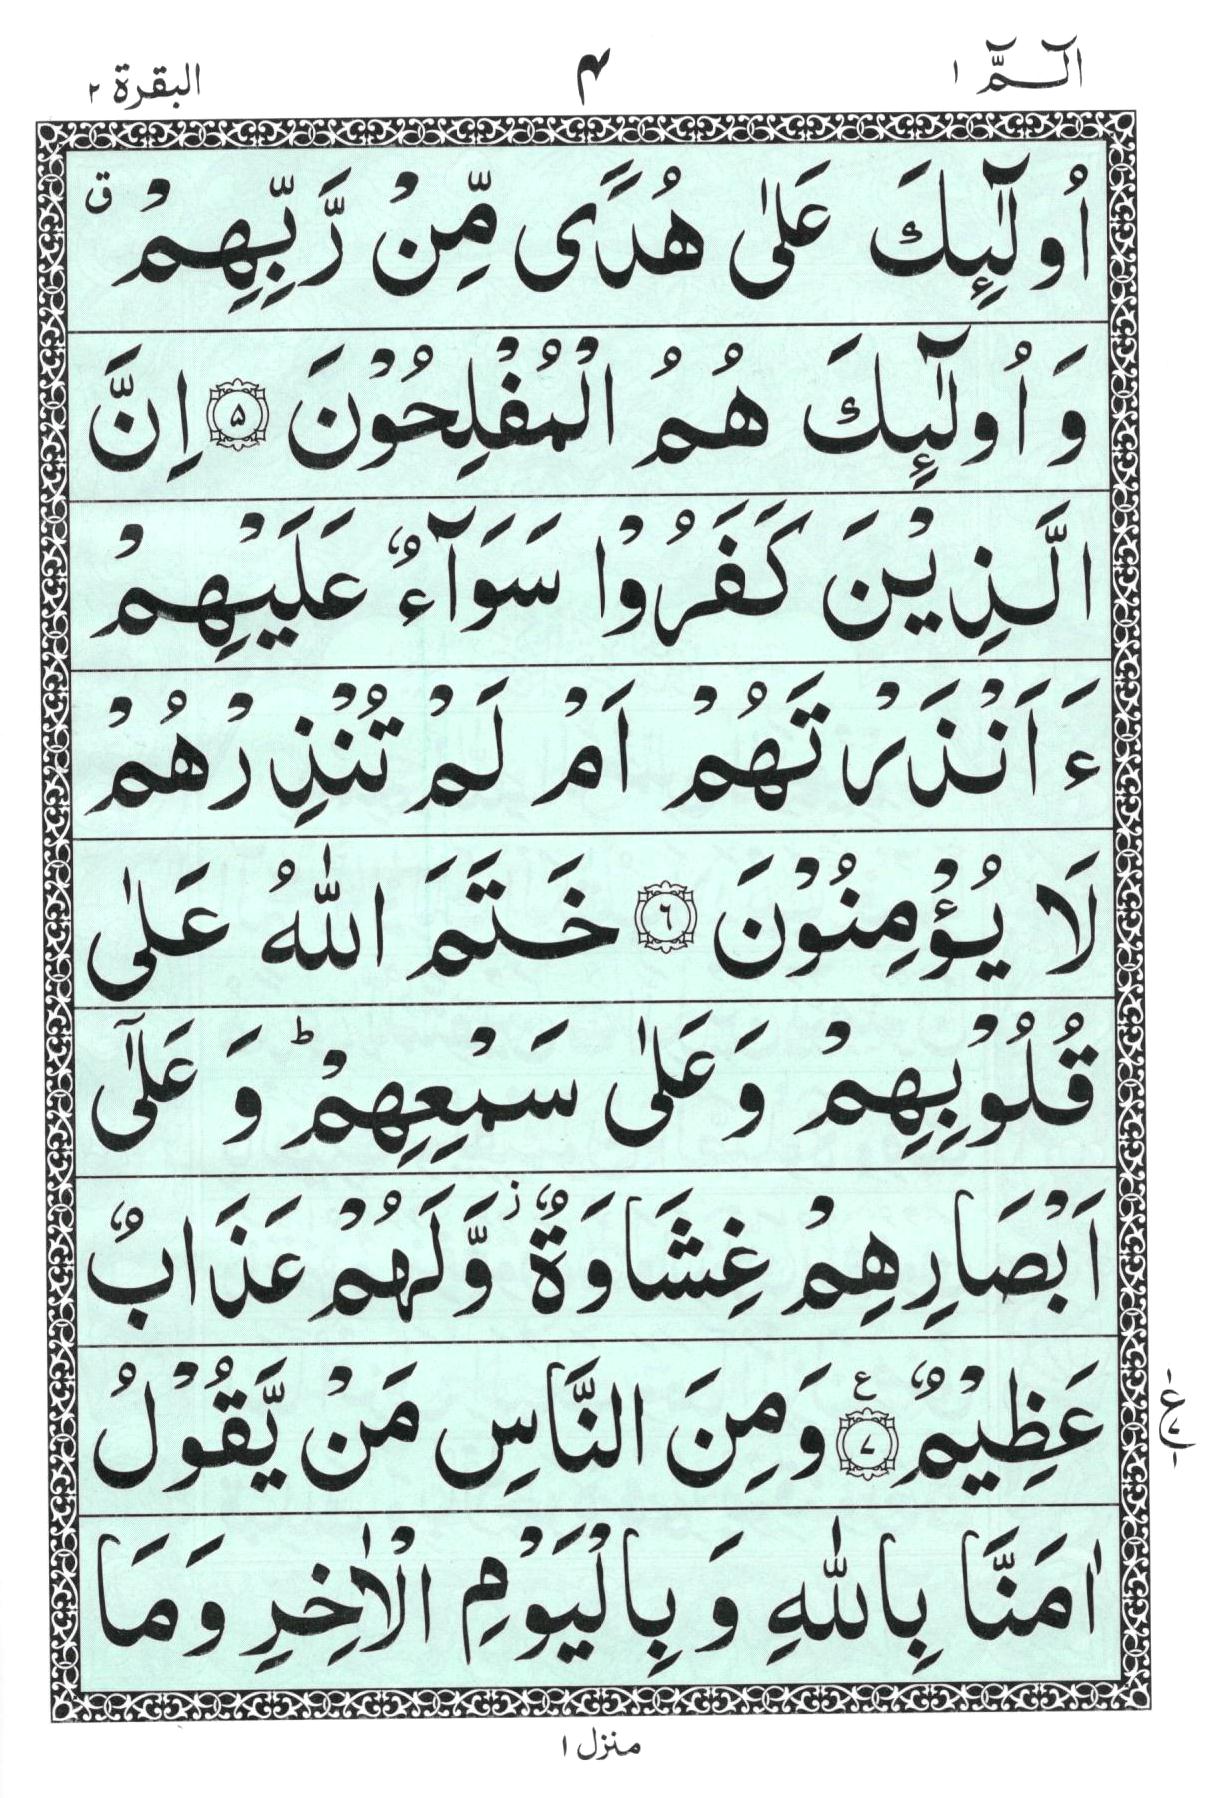 الٓــمّٓ ١
۴
البقرة ٢
اُولٰٓئِكَ عَلٰى هُدًى مِّنْ رَّبِّهِمْ ۗق
وَ اُولٰٓئِكَ هُمُ الْمُفْلِحُوْنَ ۝۵ اِنَّ
الَّذِيْنَ كَفَرُوْا سَوَآءٌ عَلَيْهِمْ
ءَاَنْذَرْتَهُمْ اَمْ لَمْ تُنْذِرْهُمْ
لَا يُؤْمِنُوْنَ ۝٦ خَتَمَ اللّٰهُ عَلٰى
قُلُوْبِهِمْ وَعَلٰى سَمْعِهِمْ ؕ وَ عَلٰٓى
اَبْصَارِهِمْ غِشَاوَةٌ ز وَّلَهُمْ عَذَابٌ
عَظِيْمٌ ۝٧ ع وَمِنَ النَّاسِ مَنْ يَّقُوْلُ
اٰمَنَّا بِاللّٰهِ وَ بِالْيَوْمِ الْاٰخِرِ وَمَا
١
ع
٧
١
منزل ١